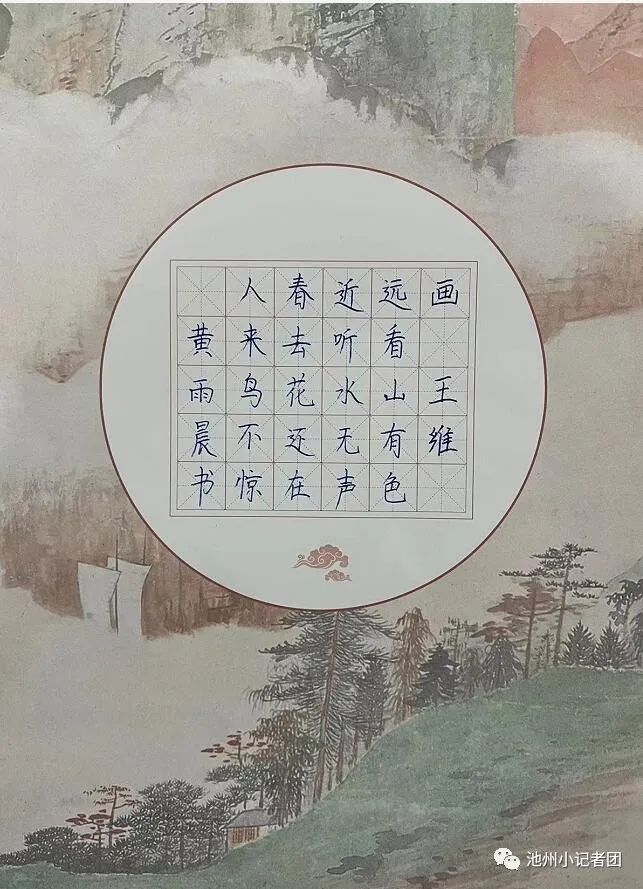 画 王维
远看山有色
近听水无声
春去花还在
人来鸟不惊
黄雨晨书
池州小记者团